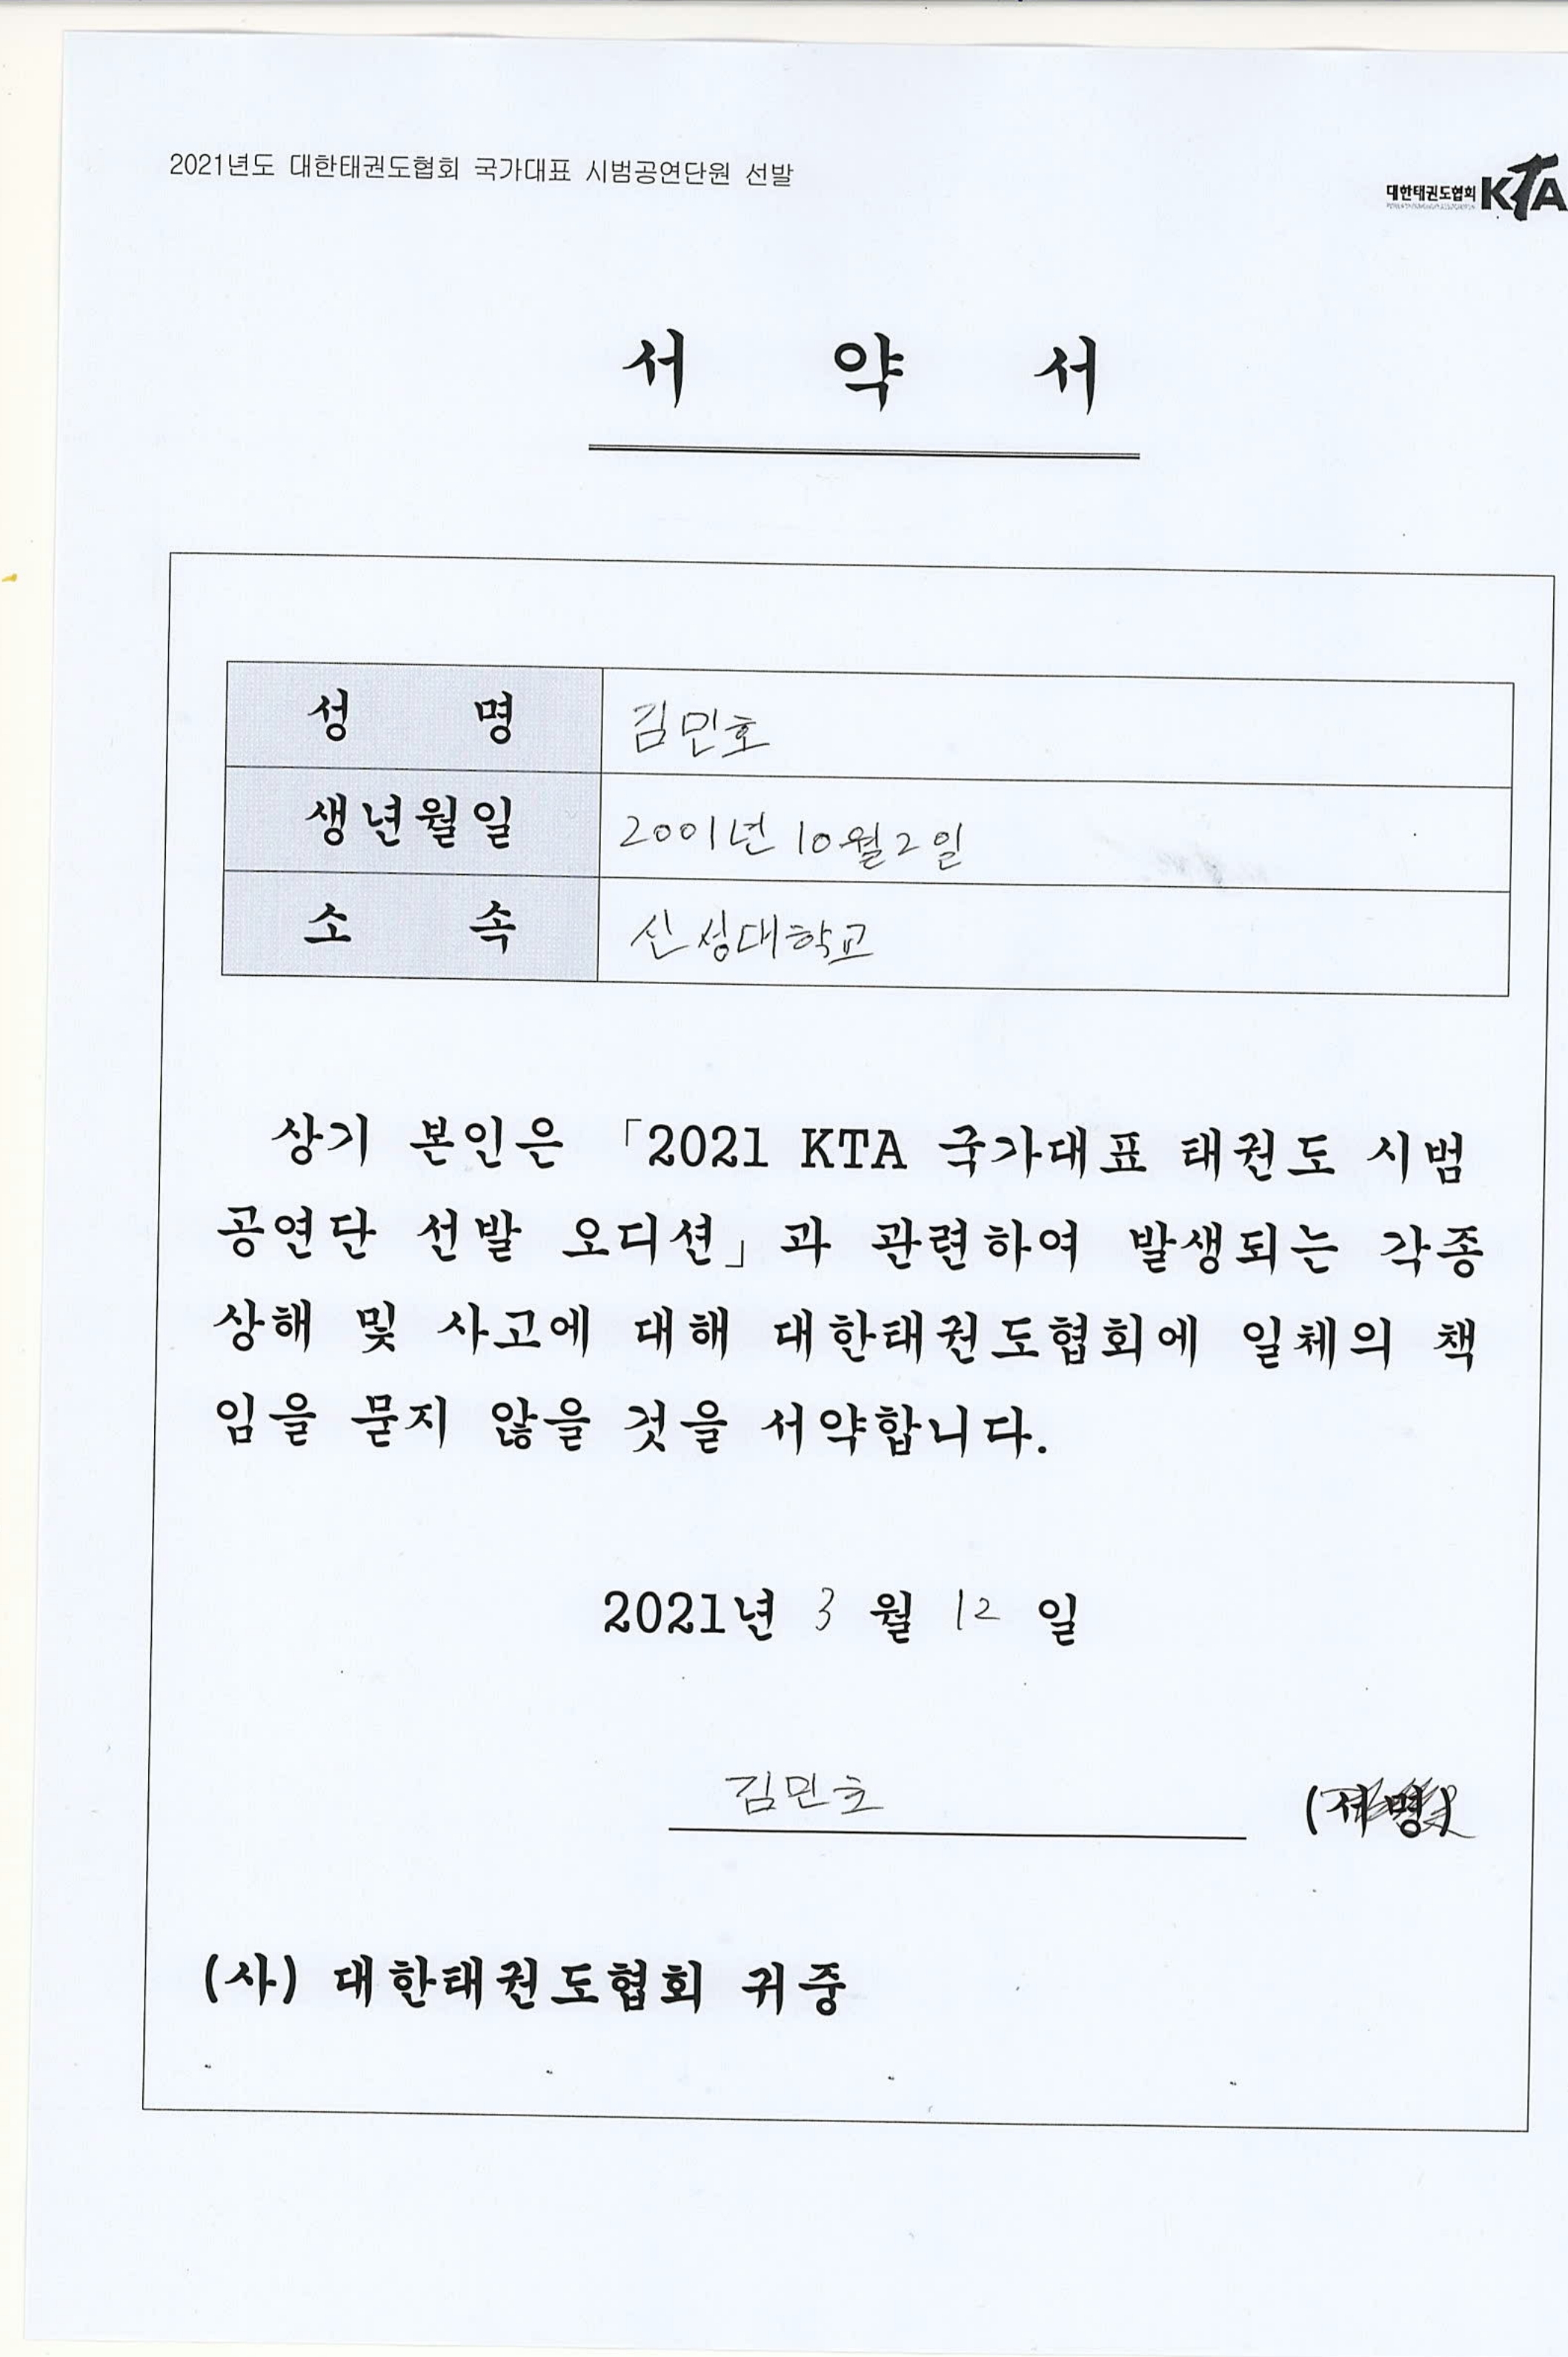 2021년도 대한태권도협회 국가대표 시범공연단원 선발
대한태권도협회 KTA
서 약 서
성 명 김민호
생년월일 2001년 10월 2일
소 속 신성대학교
상기 본인은 「2021 KTA 국가대표 태권도 시범
공연단 선발 오디션」과 관련하여 발생되는 각종
상해 및 사고에 대해 대한태권도협회에 일체의 책
임을 묻지 않을 것을 서약합니다.
2021년 3 월 12 일
김민호 (서명)
(사) 대한태권도협회 귀중